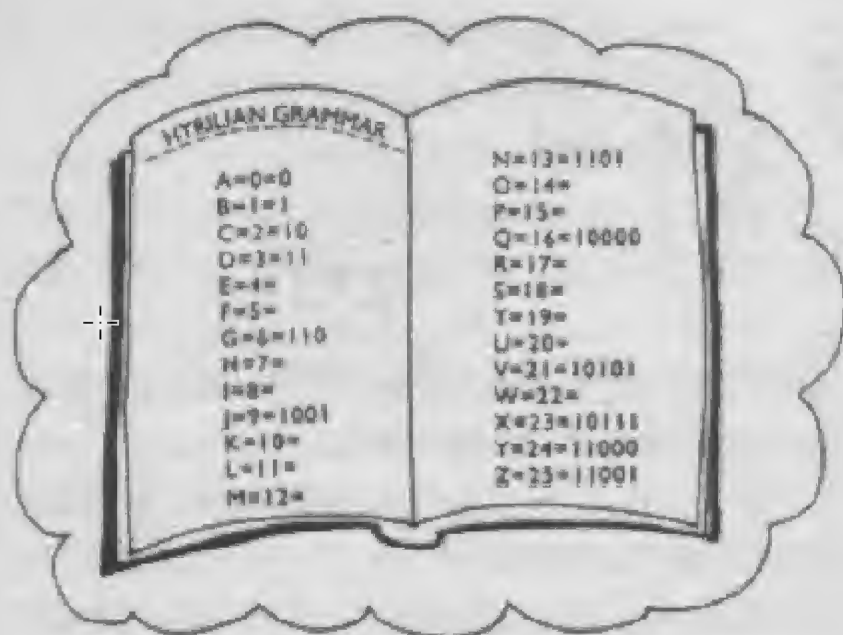 GRAMMAR
A=0=0
B=1=1
C=2=10
D=3=11
E=4=
F=5=
G=6=110
H=7=
I=8=
J=9=1001
K=10=
L=11=
M=12=
N=13=1101
O=14=
P=15=
Q=16=10000
R=17=
S=18=
T=19=
U=20=
V=21=10101
W=22=
X=23=10111
Y=24=11000
Z=25=11001